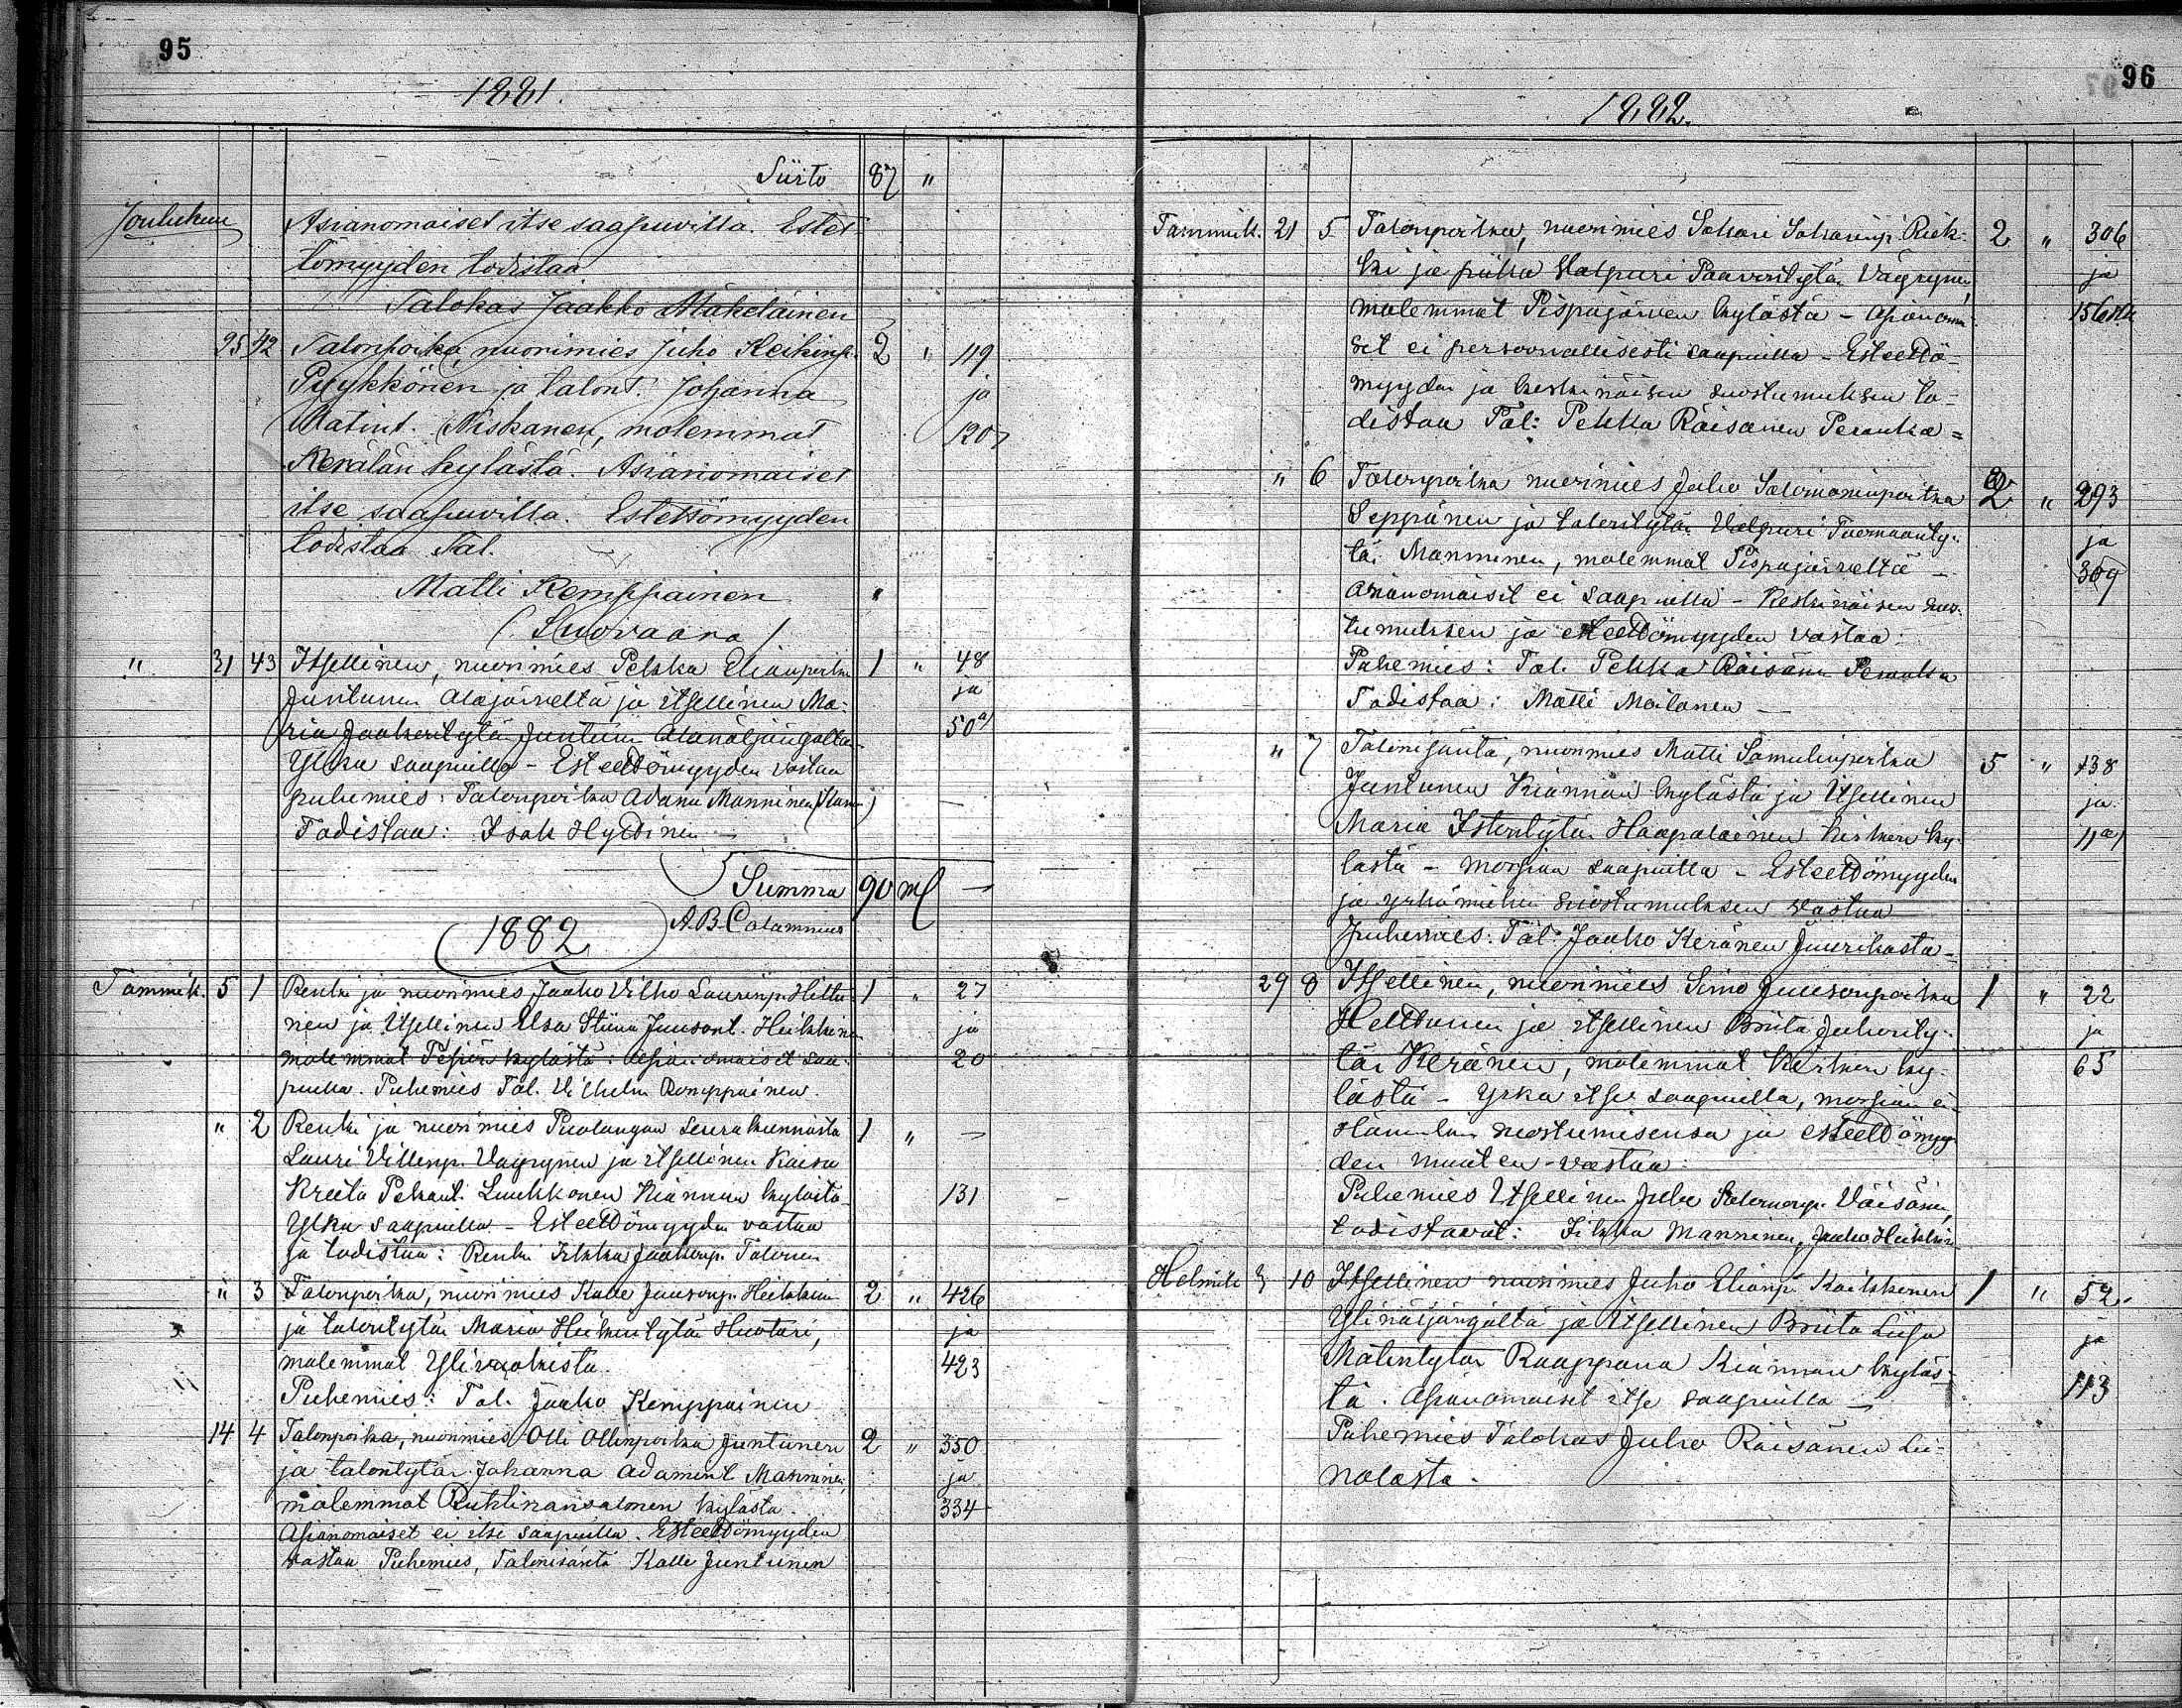 95
1881.
Siirto 87 "
Joulukuu Asianomaiset itse saapuvilla. Estet-
tömyyden todistaa
Talokas Jaakko Mäkeläinen
25 42 Talonpoika, nuorimies Juho Heikinp. 2 " 119
Pyykkönen ja talont. Johanna ja
Matint. Niskanen, molemmat 120
Kerälän kylästä. Asianomaiset
itse saapuvilla. Estettömyyden
todistaa Tal.
Matti Kemppainen "
(Suovaara)
" 31 43 Itsellinen, nuorimies Pekka Elianpoika 1 " 48
Juntunen Alajärveltä ja itsellinen Ma- ja
ria Jaakontytär Juntunen Alanäljängältä 50a/
Ylkä saapuilla - Esteettömyyden vastaa
puhemies: Talonpoika Adam Manninen
Todistaa: Isak Hyttinen -
Summa 90 m
A.B. Calamnius
1882
Tammik. 5 1 Renki ja nuorimies Jaako Vilho Laurinp. Hiltu- 1 " 27
nen ja Itsellinen Elsa Stiina Juusont. Heikkinen ja
molemmat Pesiön kylästä: Asianomaiset saa- 20
puilla. Puhemies Tal. Vilhelm Kemppainen.
" 2 Renki ja nuorimies Puolangan seurakunnasta 1 " -
Lauri Villenp. Väyrynen ja itsellinen Kaisa
Kreeta Pekant. Luukkonen Kiannan kylästä 131
Ylkä saapuilla - Esteettömyyden vastaa
ja todistaa: Renki Jaakonp. Talonen
" 3 Talonpoika, nuorimies Kalle Juusonp. Heikkinen 2 " 426
ja talontytär Maria Heikintytär Huotari, ja
molemmat Ylivuokista. 423
Puhemies: Tal. Jaako Kemppainen
14 4 Talonpoika, nuorimies Olli Ollinpoika Juntunen 2 " 350
ja talontytär Johanna Adamint. Manninen ja
molemmat Ruhtinansalmen kylästä. 334
Asianomaiset ei itse saapuilla. Esteettömyyden
vastaa Puhemies, Talonisäntä Kalle Juntunen
96
1882.
Tammik. 21 5 Talonpoika, nuorimies Sakari Sakarinp. Riek- 2 " 306
ki ja piika Valpuri Paavontytär Väyrynen, ja
molemmat Pispajärven kylästä - Asianomai- 156
set ei persoonallisesti saapuilla - Esteettö-
myyden ja keskinäisen suostumuksen to-
distaa Tal: Pekka Räisänen Peranka =
" 6 Talonpoika nuorimies Juho Salomoninpoika 2 " 293
Seppänen ja talontytär Valpuri Tuomaanty- ja
tär Manninen, molemmat Pispajärveltä - 309
Asianomaiset ei saapuilla - Keskinäisen suos-
tumuksen ja esteettömyyden vastaa:
Puhemies: Tal. Pekka Räisänen Peranka
Todistaa: Matti Moilanen -
" 7 Talonisäntä, nuorimies Matti Samulinpoika 5 " 138
Juntunen Kiannan kylästä ja Itsellinen ja
Maria Haapalainen Kerkon ky- 11a/
lästä - morsian saapuilla - Esteettömyyden
ja yrkämiehen suostumuksen vastaa
puhemies: Tal: Jaako Keränen Juurikasta -
29 8 Itsellinen, nuorimies Simo Juusonpoika 1 " 22
Helttunen ja itsellinen Briita Juhonty- ja
tär Keränen, molemmat Kerkon ky- 65
lästä - Yrkä itse saapuilla, morsian ei -
Hänenkin suostumisensa ja esteettömyy-
den muuten vastaa:
Puhemies Itsellinen Juho Salomonp. Väisänen,
todistavat: Manninen, Jaako Heikkinen
Helmik 3 10 Itsellinen nuorimies Juho Elianp. Kaikkonen 1 " 52
Ylinäljängältä ja Itsellinen Briita Liisa ja
Matintytär Raappana Kiannan kyläs- 113
tä. Asianomaiset itse saapuilla -
Puhemies Talokas Juho Räisänen Lii-
nalasta.